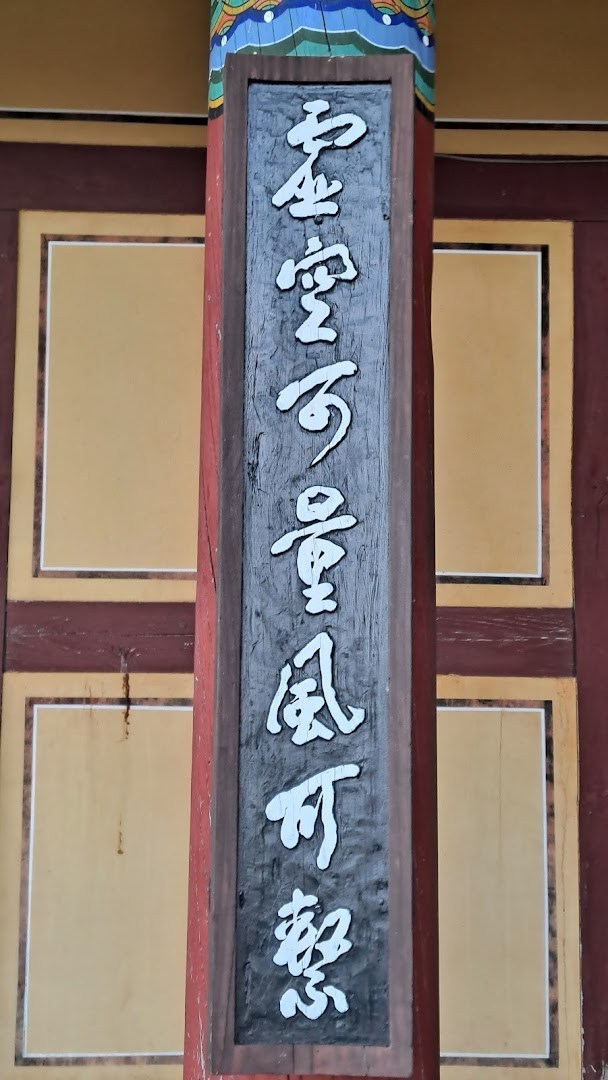 虛空可量風可繫